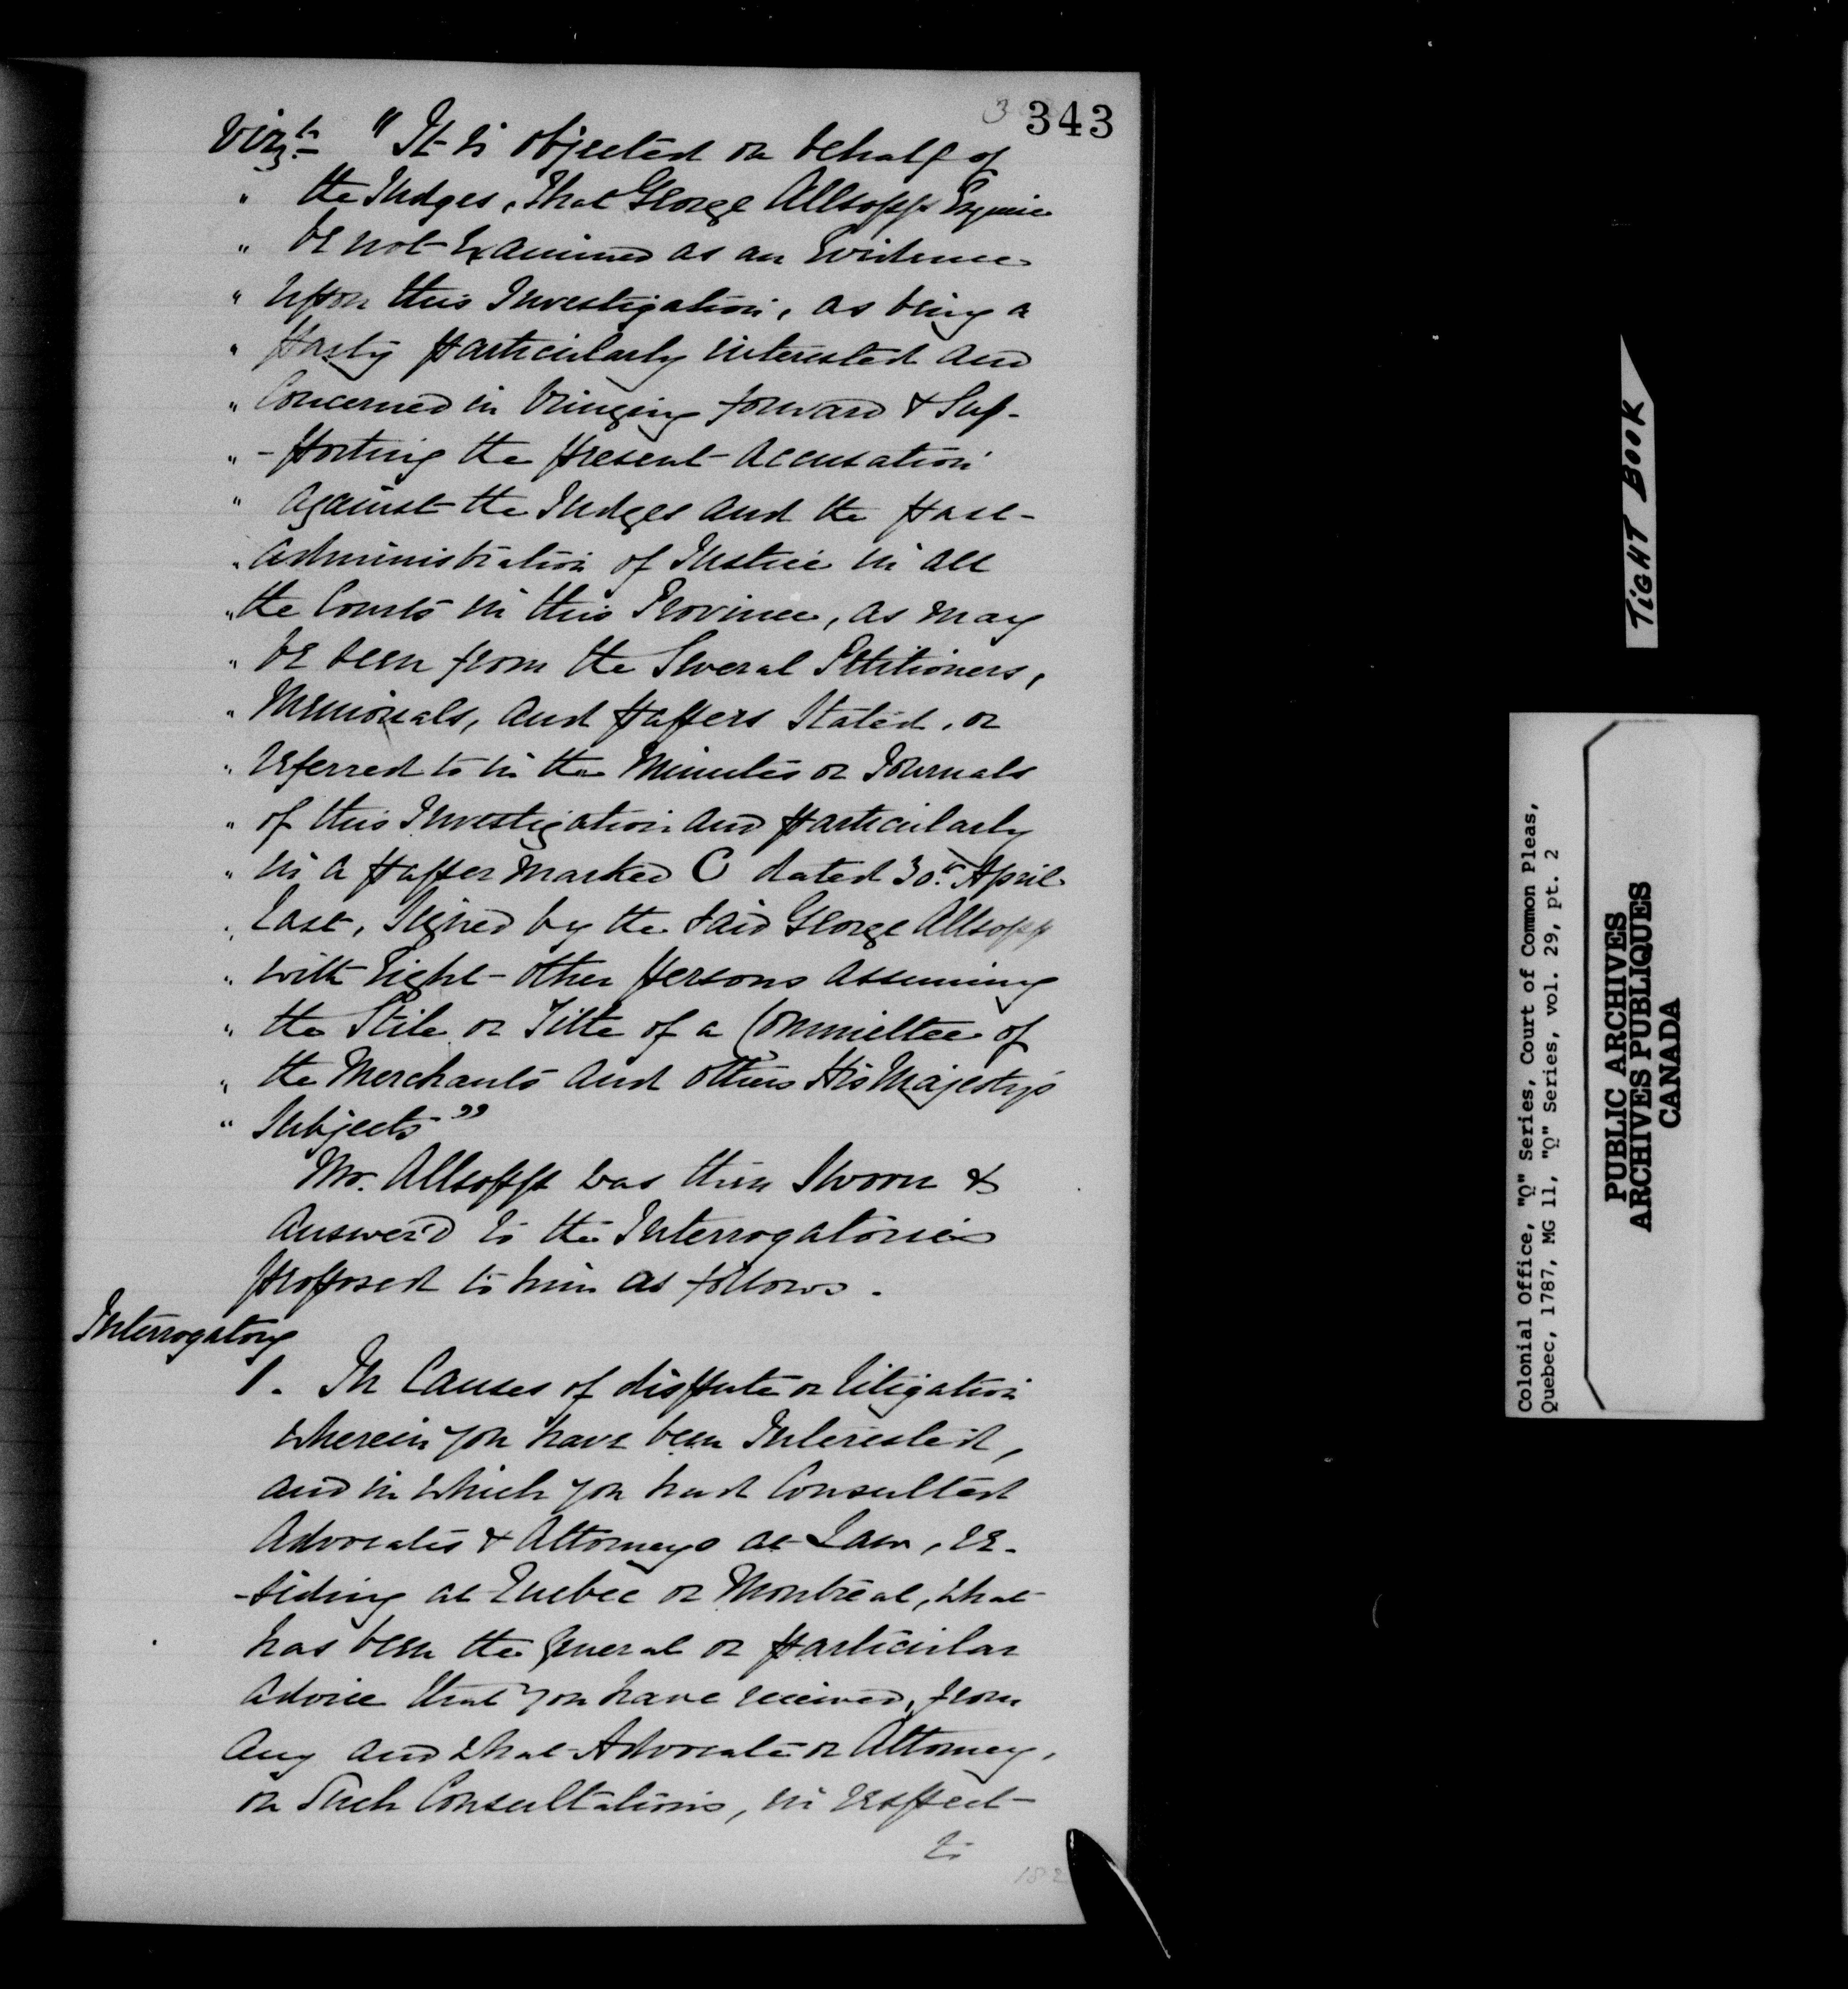 343
Vizt. "It is objected on behalf of
" the Judges, that George Allsopp Esquire
" be not Examined as an Evidence
" upon this Investigation, as being a
" party particularly interested and
" Concerned in bringing forward & Sup-
" -porting the present Accusation
" against the Judges and the past
" Administration of Justice in all
" the Courts in this Province, as may
" be seen from the Several Petitioners,
" Memorials, and papers Stated, or
" referred to in the Minutes or Journals
" of this Investigation and particularly
" in a paper marked C dated 30th April
" last, Signed by the said George Allsopp
" with Eight other persons assuming
" the Stile or Title of a Committee of
" the Merchants and others His Majesty's
" Subjects"
Mr. Allsopp was then Sworn &
answer'd to the Interrogatories
proposed to him as follows.
Interrogatory
1. In Causes of dispute or litigation
wherein you have been Interested,
and in which you had Consulted
Advocates & Attorneys at Law, re-
-siding at Quebec or Montreal, what
has been the general or particular
advice that you have received, from
any and what Advocate or Attorney,
on Such Consultations, in respect
to
TIGHT BOOK
Colonial Office, "Q" Series, Court of Common Pleas,
Quebec, 1787, MG 11, "Q" Series, vol. 29, pt. 2
PUBLIC ARCHIVES
ARCHIVES PUBLIQUES
CANADA